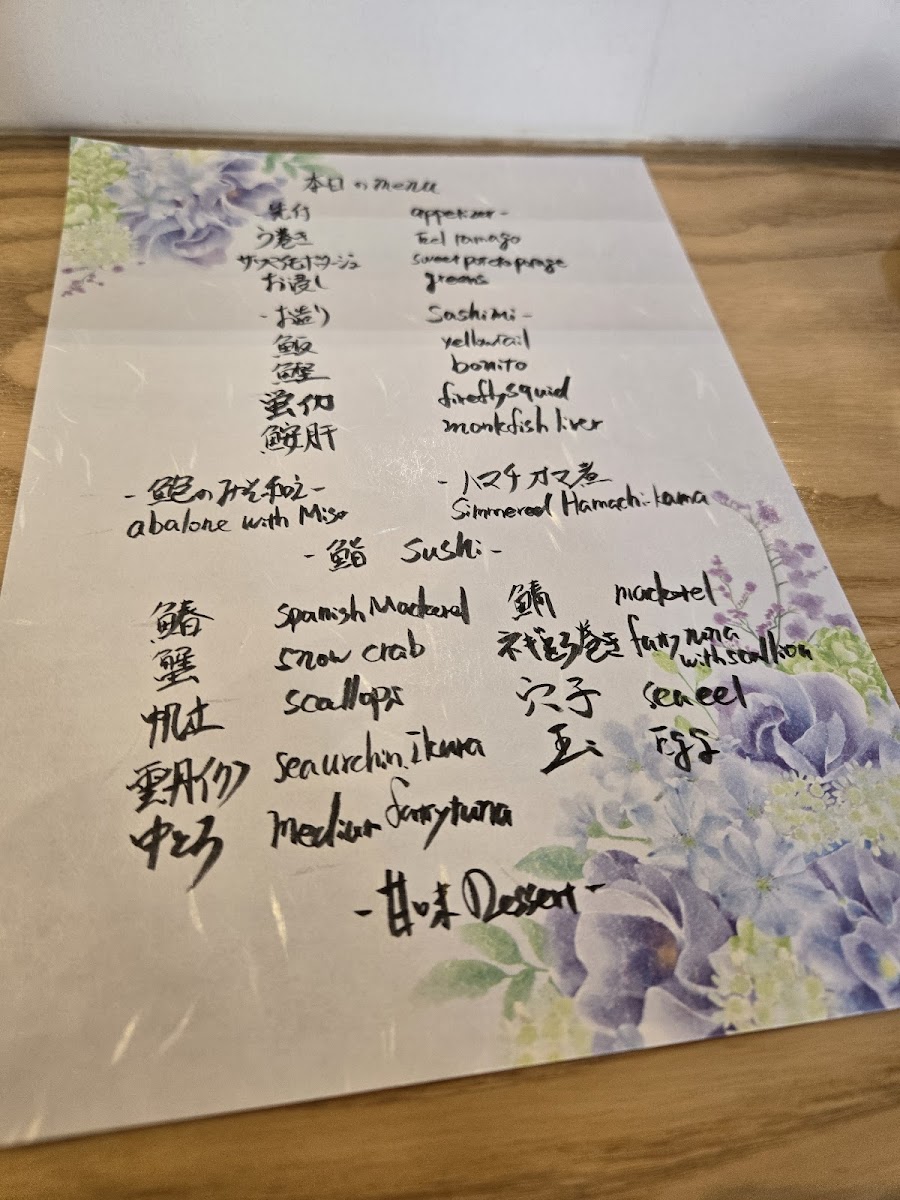 本日のmenu
先付 appetizer-
う巻き Eel tamago
サツマイモポタージュ sweet potato potage
お浸し greens
-お造り Sashimi-
鰤 yellowtail
鰹 bonito
蛍イカ firefly squid
鮟肝 monkfish liver
-鮑のみそ和え- -ハマチカマ煮
abalone with Miso Simmered Hamachi-kama
-鮨 Sushi-
鰆 Spanish Mackerel 鯖 mackerel
蟹 snow crab ネギとろ巻き fatty tuna with scallion
帆立 scallops 穴子 sea eel
雲丹イクラ sea urchin. Ikura 玉 Egg
中とろ Medium fatty tuna
-甘味 Dessert-